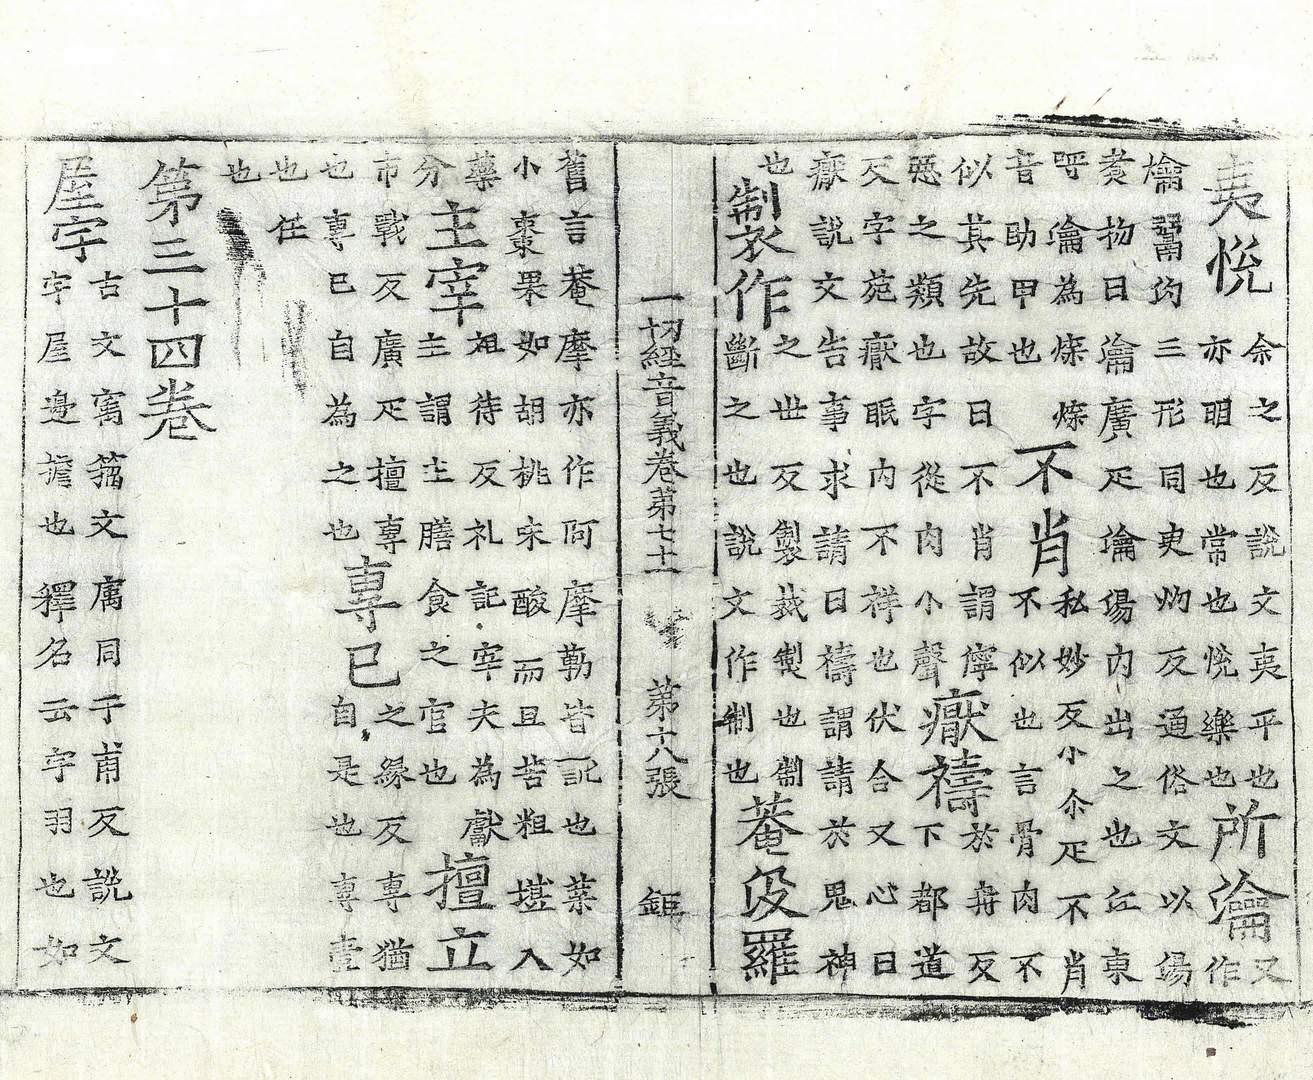 夷悅余之反說文夷平也亦明也常也悅樂也所瀹又作
爚鬻汋三形同臾灼反通俗文以湯煑物曰瀹廣疋瀹湯內出之也江東
呼瀹為煠煠音助甲也不肖私妙反小尒疋不肖不似也言骨肉不
似其先故曰不肖謂儜惡之類也字從肉小聲厭禱於舟反下都道
反字苑厭眠內不祥也伏合又心曰厭說文告事求請曰禱謂請於鬼神
也製作之世反製裁製也制斷之也說文作制也菴沒羅
一切經音義卷第七十一 第十八張 鉅
舊言菴摩亦作阿摩勒皆訛也葉如小棗果如胡桃味酸而且苦粗堪入
藥分主宰祖待反礼記宰夫為獻主謂主膳食之官也擅立
市戰反廣疋擅專也專已自為之也專已之緣反專猶自是也專壹
也任也
第三十四卷
屋宇古文寓籀文庽同于甫反說文宇屋邊擔也釋名云宇羽也如